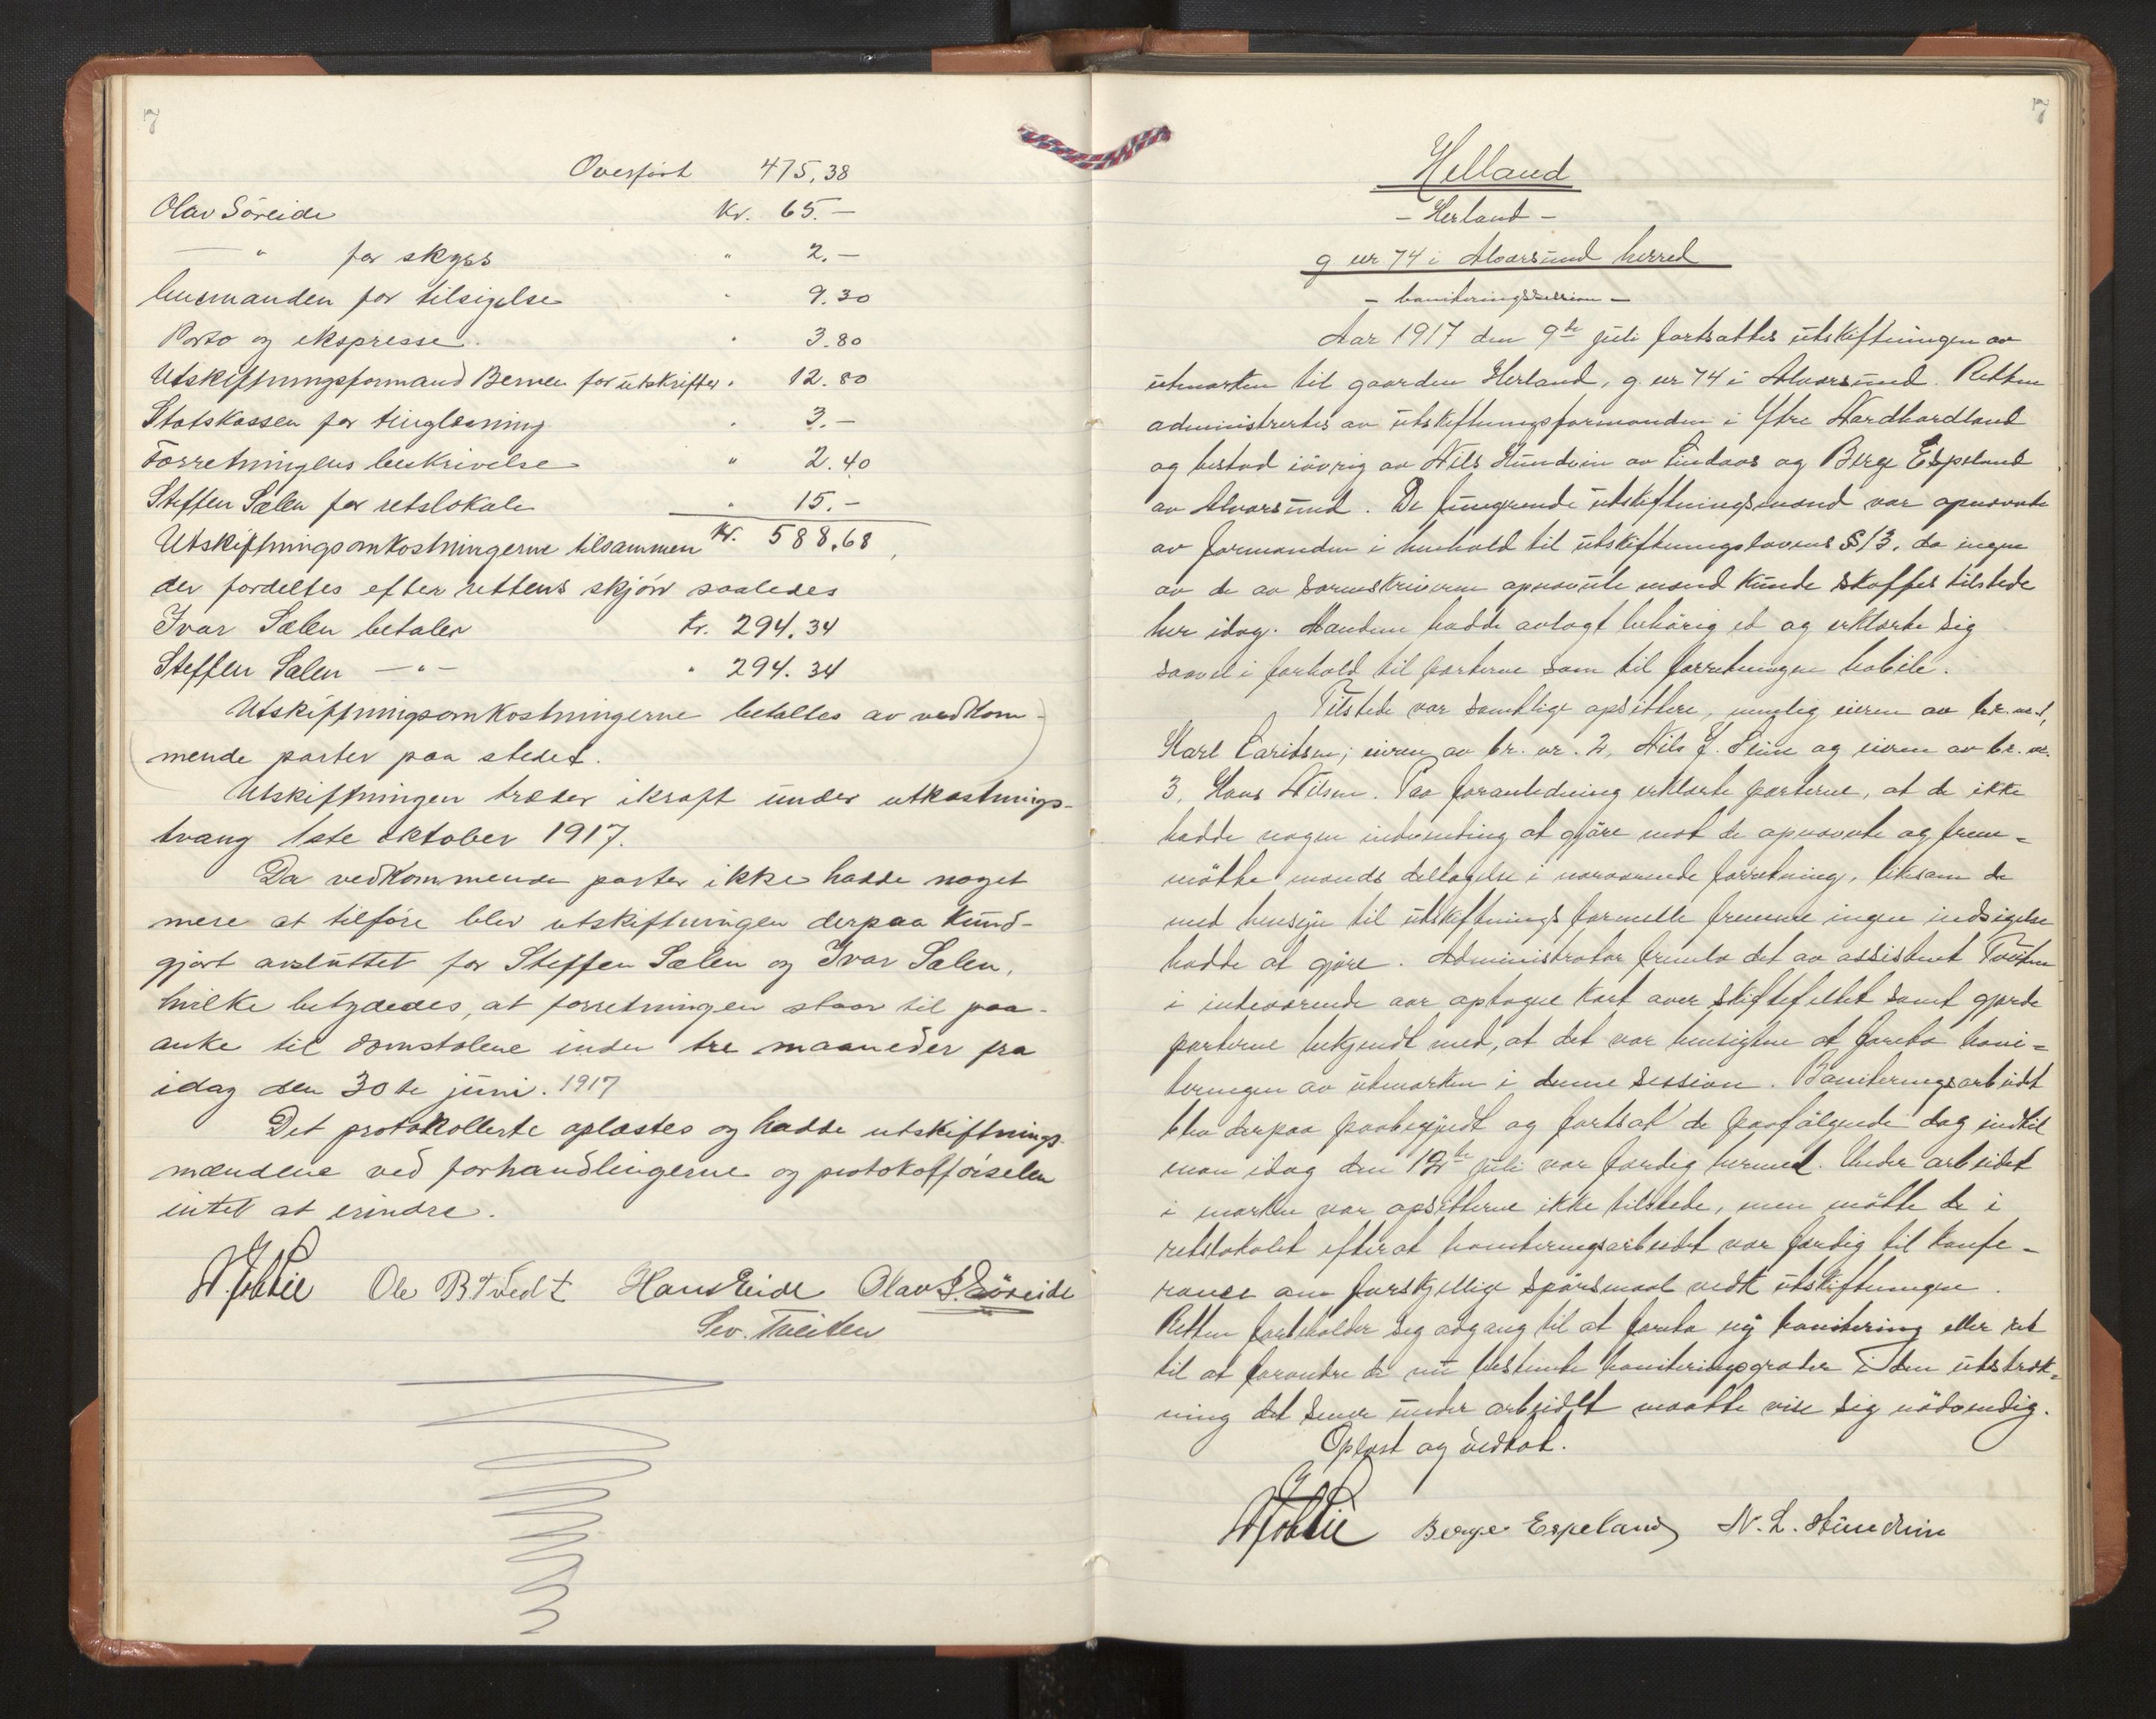 7
Overført 475,38
Olav Söreide Kr. 65.-
— " for skyss " 2.-
Lensmanden for tilsigelse " 9.30
Porto og ekspresse " 3.80
Utskiftningsformand Berner for utskrifter " 12.80
Statskassen for tinglæsning " 3.-
Forretningens beskrivelse " 2.40
Steffen Sælen for retslokale " 15.-
Utskiftningsomkostningerne tilsammen Kr. 588,68,
der fordeltes efter rettens skjön saaledes
Ivar Sælen betaler Kr. 294.34
Steffen Sælen —"— " 294.34
Utskiftningsomkostningerne betaltes av vedkom-
mende parter paa stedet.
Utskiftningen træder ikraft under utkastnings-
tvang 1ste oktober 1917.
Da vedkommende parter ikke hadde noget
mere at tilföre blev utskiftningen derpaa kund-
gjort avsluttet for Steffen Sælen og Ivar Sælen,
hvilke betydedes, at forretningen staar til paa-
anke til domstolene inden tre maaneder fra
idag den 30te juni. 1917
Det protokollerte oplæstes og hadde utskiftnings-
mændene ved forhandlingerne og protokolförselen
intet at erindre.
Ole B. Tvedt Hans Eide Olav S. Söreide
Sev. Tveiten
7
Helland
- Herland -
g nr 74 i Alversund herred
- boniteringssession -
Aar 1917 den 9de juli fortsattes utskiftningen av
utmarken til gaarden Herland, g. nr 74 i Alversund. Retten
administrertes av utskiftningsformanden i Ytre Nordhordland
og bestod iövrig av Nils Hundvin av Lindaas og Berge Espeland
av Alversund. De fungerende utskiftningsmænd var opnævnte
av formanden i henhold til utskiftningslovens § 13, da ingen
av de av sorenskriveren opnævnte mænd kunde skaffes tilstede
her idag. Mændene hadde avlagt behörig ed og erklærte sig
saavel i forhold til parterne som til forretningen habile.
Tilstede var samtlige opsittere, nemlig eieren av br. nr. 1,
Karl Laritsen; eieren av br. nr. 2, Nils J. Seim og eieren av br. nr.
3, Hans Nilsen. Paa foranledning erklærte parterne, at de ikke
hadde nogen indvending at gjöre mot de opnævnte og frem-
mötte mænds deltagelse i nærværende forretning, liksom de
med hensyn til utskiftnings formelle fremme ingen indsigelse
hadde at gjöre. Administrator fremla det av assistent Tveiten
i indeværende aar optagne kart over skiftefeltet samt gjorde
parterne bekjendt med, at det var hensigten at foreta boni-
teringen av utmarken i denne session. Boniteringsarbeidet
blev derpaa paabegyndt og fortsat de paafölgende dag indtil
man idag den 12te juli var færdig hermed. Under arbeidet
i marken var opsitterne ikke tilstede, men mötte de i
retslokalet efterat boniteringsarbeidet var færdig til konfe-
rance om forskjellige spörsmaal vedk utskiftningen.
Retten forbeholder sig adgang til at foreta ny bonitering eller ret
til at forandre de nu bestemte boniteringsgrader i den utstræk-
ning det senere under arbeidet maatte vise sig nödvendig.
Oplæst og vedtat.
Berge Espeland N. L. Hundvin